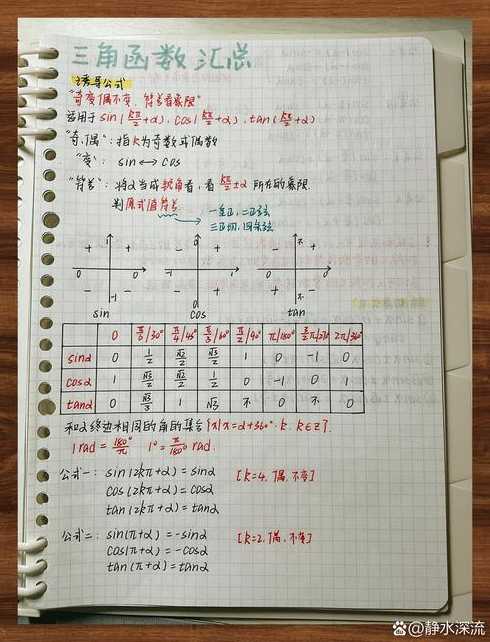 三角函数汇总
诱导公式
"奇变偶不变，符号看象限"
适用于 sin(kπ/2+α)，cos(kπ/2+α)，tan(kπ/2+α)
"奇、偶"：指k为奇数或偶数
"变"： sin⟷cos
"符号"：将α当成锐角看，看kπ/2±α 所在的象限.
判原式值符号
一全正，二正弦
三正切，四余弦
+ + - + - +
0 0 -1 1 0 0
- - - + + -
sin cos tan
0 π/6|30° π/4|45° π/3|60° π/2|90° π|180° 3/2π|270° 2π|360°
sinα 0 1/2 √2/2 √3/2 1 0 -1 0
cosα 1 √3/2 √2/2 1/2 0 -1 0 1
tanα 0 √3/3 1 √3 不 0 不 0
和α终边相同的角的集合{x|x=α+360°·k, k∈Z}.
1 rad = 180°/π 1°= π/180° rad.
公式一： sin(2kπ+α)=sinα [k=4, 偶, 不变]
cos(2kπ+α)=cosα
tan(2kπ+α)=tanα
公式二： sin(π+α)=-sinα [k=2, 偶, 不变]
cos(π+α)=-cosα
tan(π+α)=tanα
静水深流